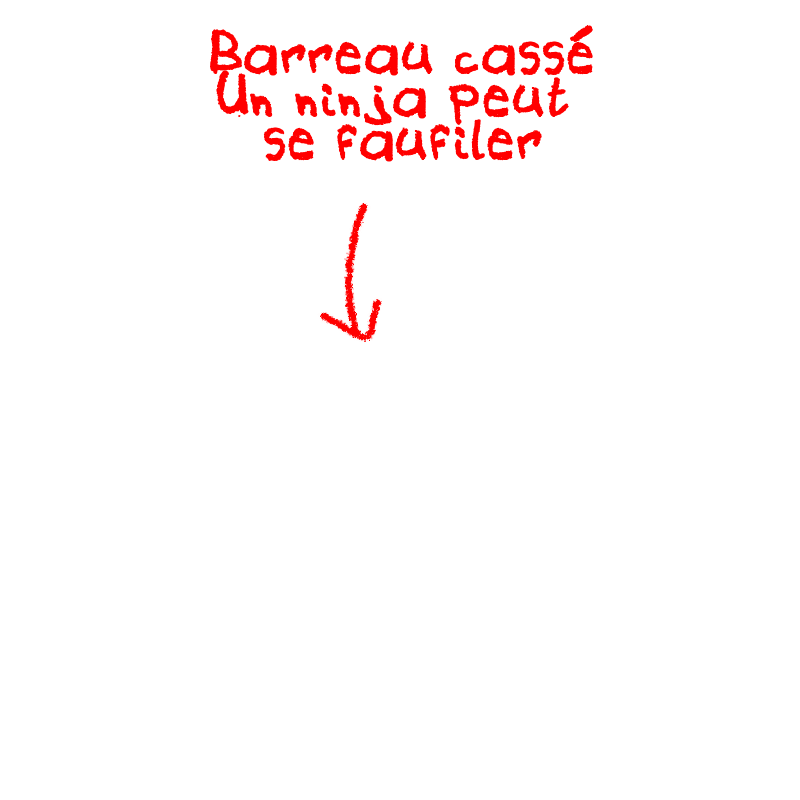 Barreau cassé
Un ninja peut
se faufiler